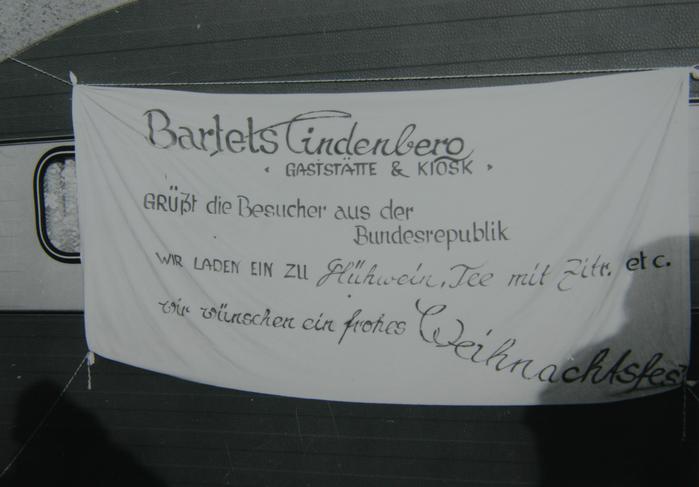 Bartels Lindenberg
• GASTSTÄTTE & KIOSK •
GRÜßt die Besucher aus der
Bundesrepublik
WIR LADEN EIN ZU Glühwein, Tee mit Zitr. etc.
wir wünschen ein frohes Weihnachtsfest